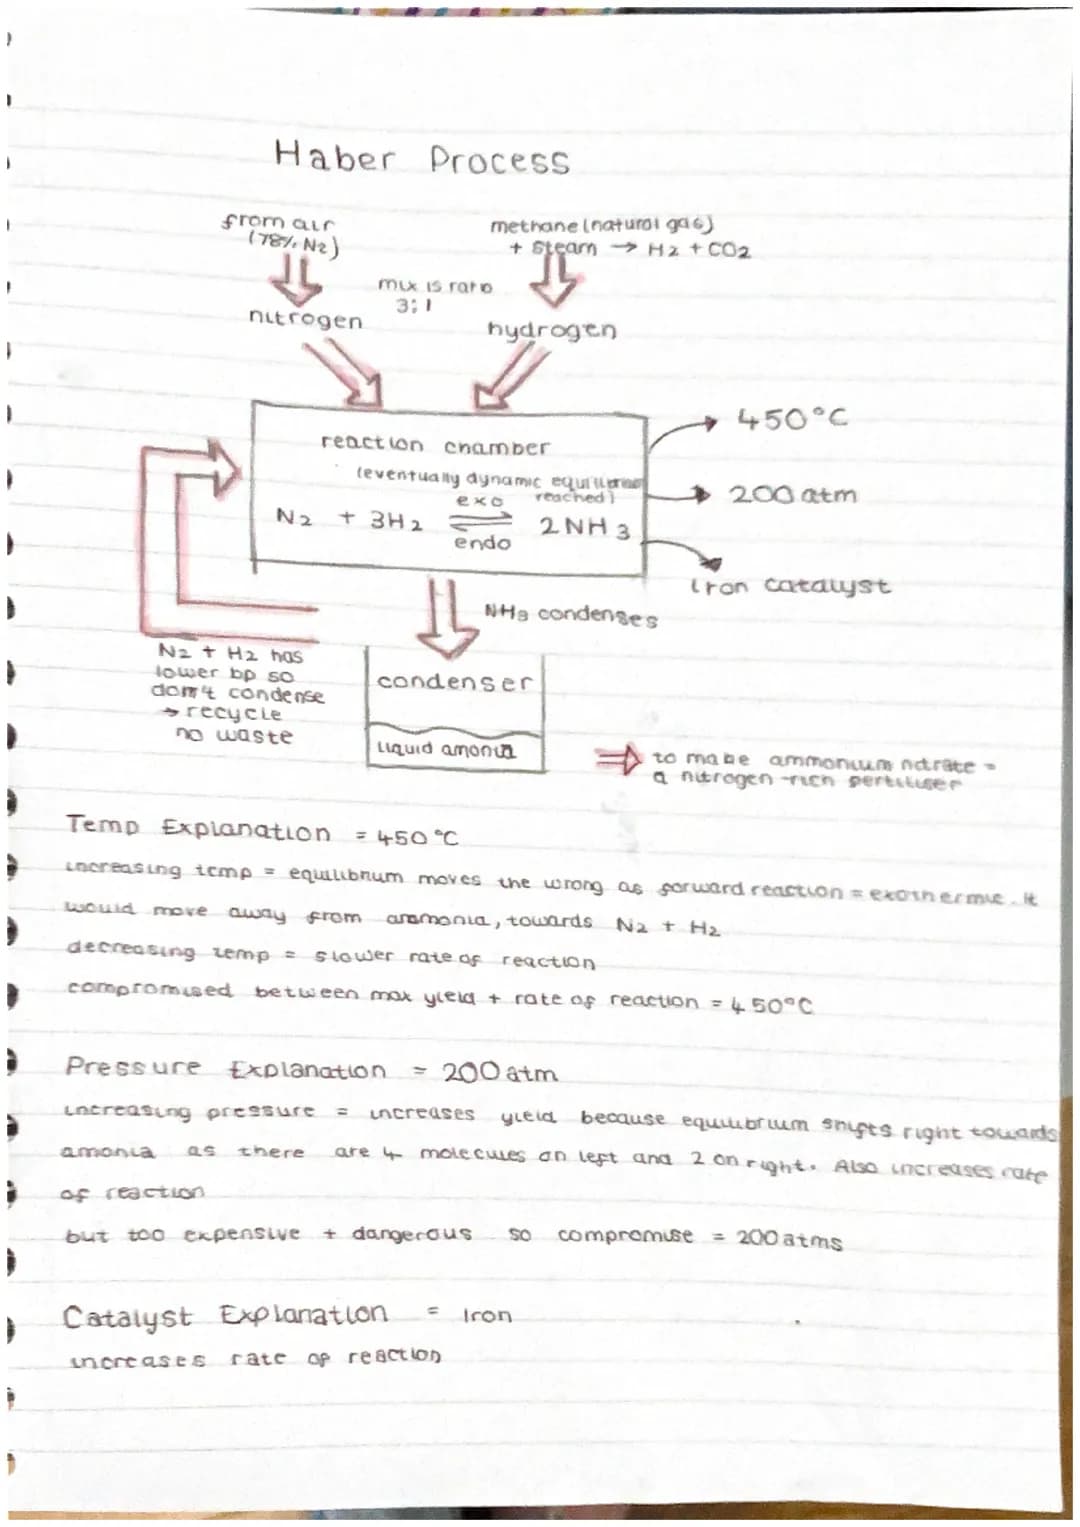 Haber Process
from air
(78% N2)
methane (natural gas)
+ steam → H2 + CO2
mix is ratio
3:1
nitrogen
hydrogen
reaction chamber
(eventually dynamic equilibrium
reached)
exo
N2 + 3H2 ⇌ 2NH3
endo
450°C
200 atm
iron catalyst
NH3 condenses
N2 + H2 has
lower bp so
don't condense
→ recycle
no waste
condenser
liquid amonia
⇒ to make ammonium nitrate =
a nitrogen-rich fertiliser
Temp Explanation = 450°C
increasing temp = equilibrium moves the wrong as forward reaction = exothermic. it
would move away from ammonia, towards N2 + H2
decreasing temp = slower rate of reaction
compromised between max yield + rate of reaction = 450°C
Pressure Explanation = 200 atm
increasing pressure = increases yield because equilibrium shifts right towards
amonia as there are 4 molecules on left and 2 on right. Also increases rate
of reaction
but too expensive + dangerous so compromise = 200 atms
Catalyst Explanation = Iron
increases rate of reaction